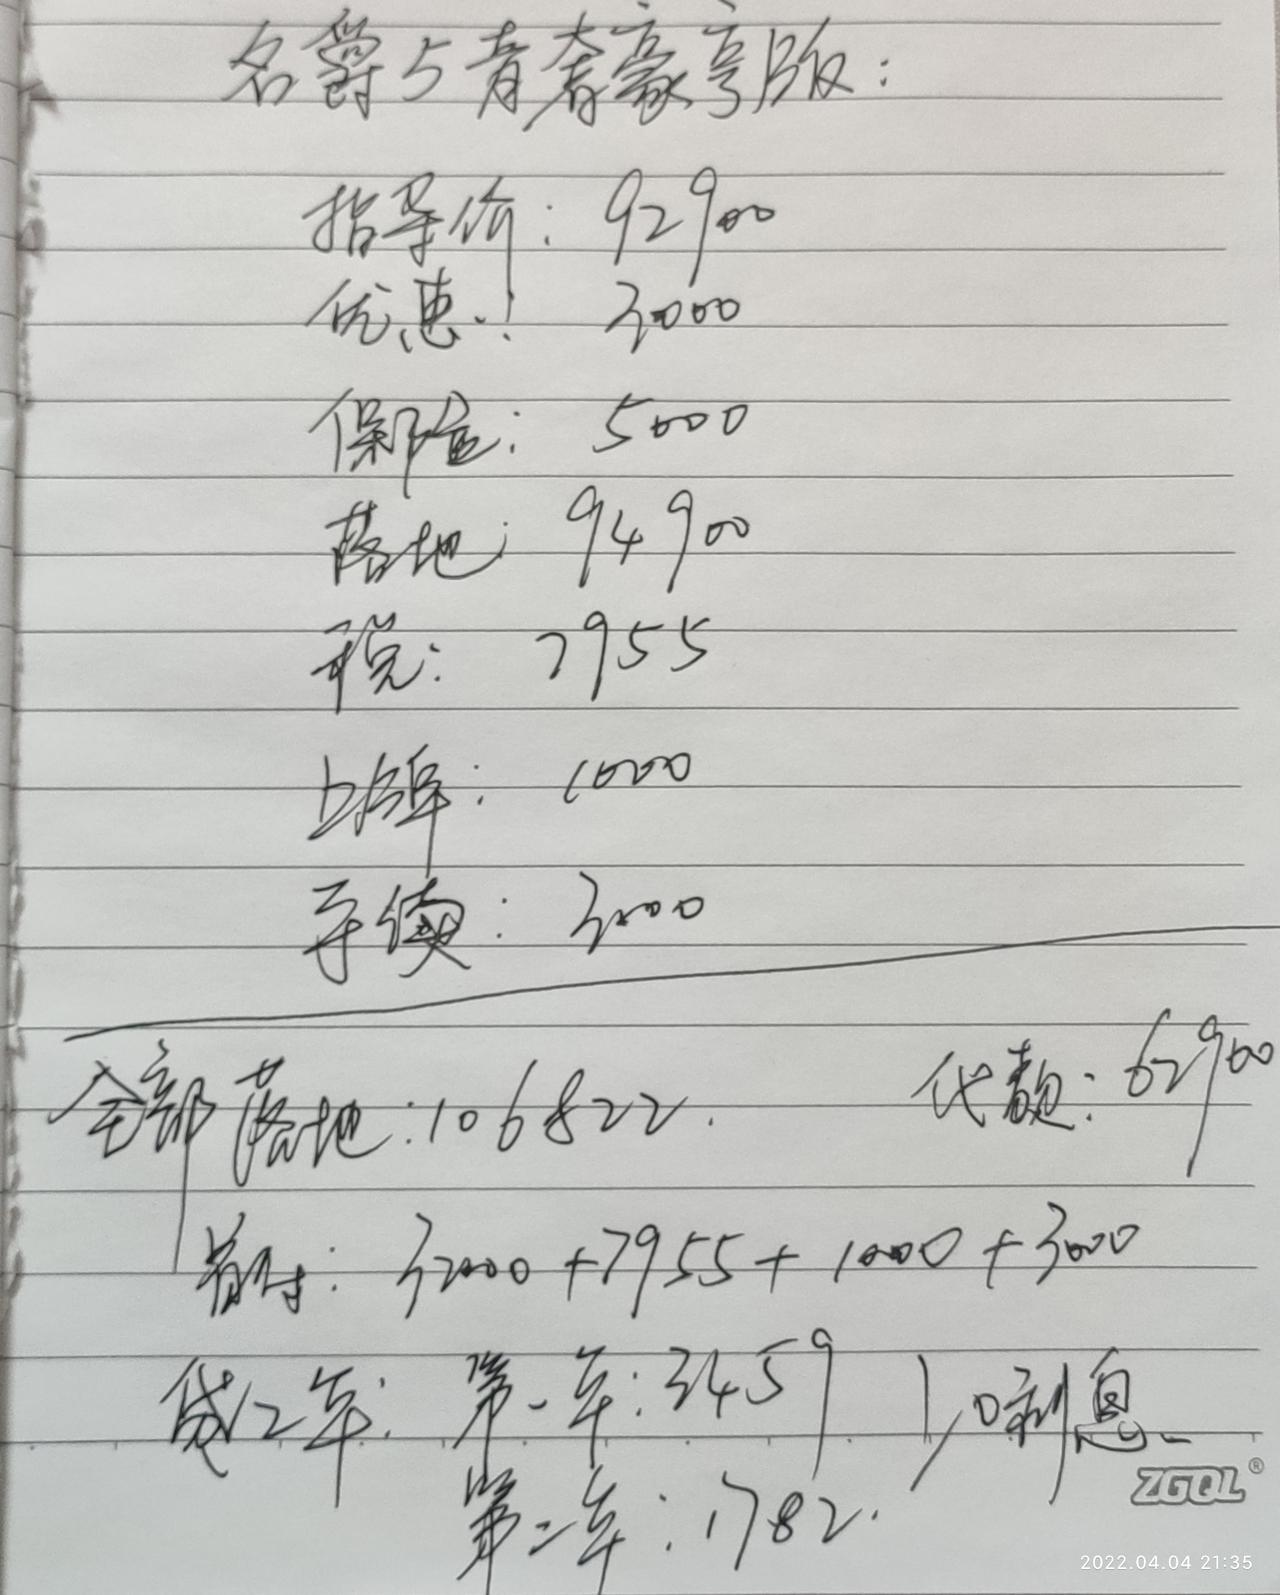 名爵5青春豪享版:
指导价: 92900
优惠: 3000
保险: 5000
落地: 94900
税: 7955
上牌: 1000
手续: 3000
全部落地: 106822.
代款: 62900
首付: 32000+7955+1000+3000
贷2年: 第一年: 3459 ,0利息
第二年: 1782.
ZGQL®
2022.04.04 21:35